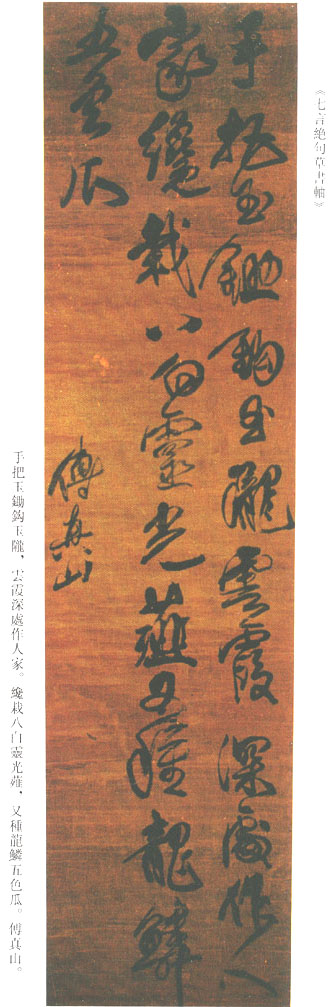 《七言絶句草書軸》
手把玉鋤鈎玉隴雲霞深處作人
家纔栽八白靈光薤又種龍鱗
五色瓜
傅真山
手把玉鋤鈎玉隴，雲霞深處作人家。纔栽八白靈光薤，又種龍鱗五色瓜。傅真山。